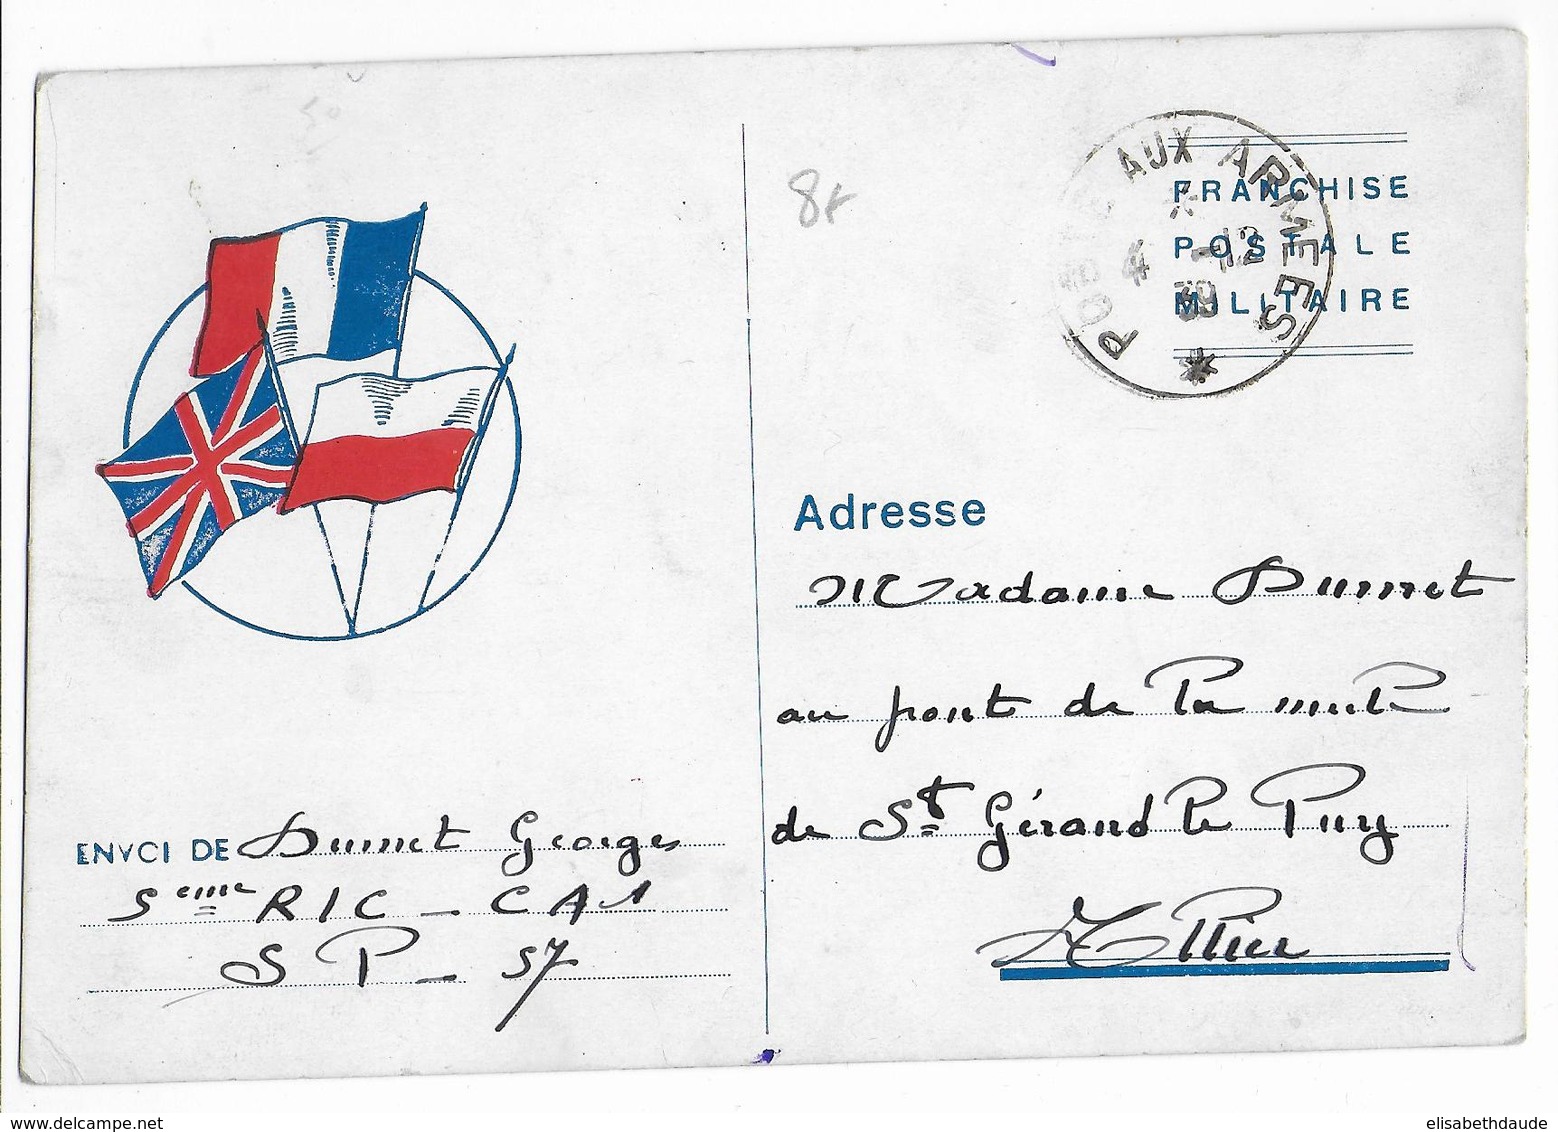 8f
POSTE AUX ARMEES
*
FRANCHISE
POSTALE
MILITAIRE
Adresse
Madame Dumet
au pont de la mule
de St Gérand le Puy
Allier
ENVOI DE Dumet Georges
5eme RIC - CA1
SP - 57
www.delcampe.net
elisabethdaude